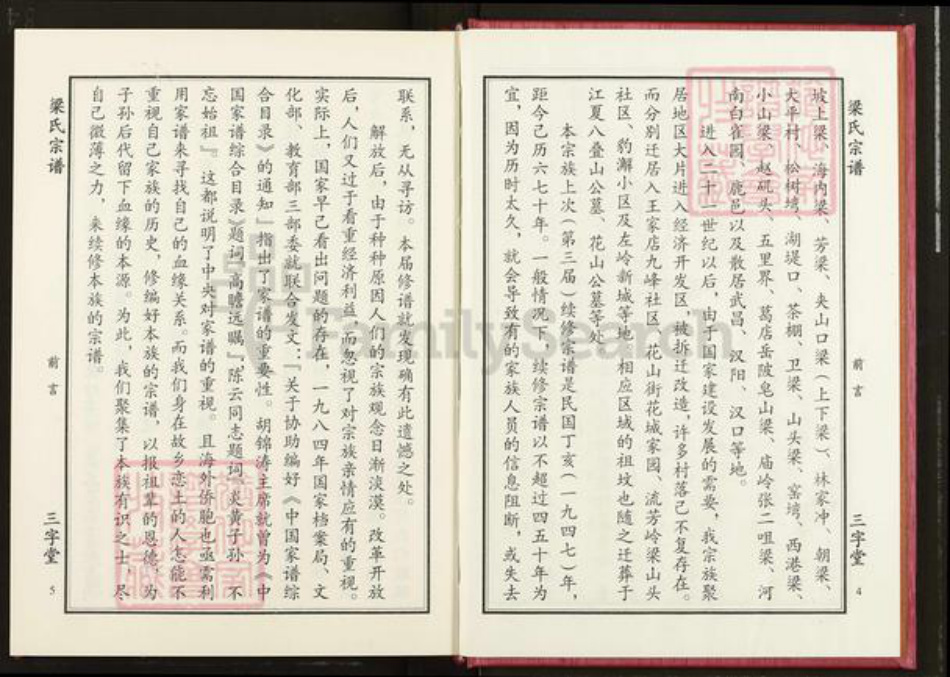 梁氏宗谱
前言
三字堂
4
坡上梁、海内梁、芳梁、夹山口梁（上下梁）、林家冲、朝梁、
大平村、松树塆、湖堤口、茶棚、卫梁、山头梁、窑塆、西港梁、
小山梁、赵矶头、五里界、葛店岳陂皂山梁、庙岭张二咀梁、河
南白雀园、鹿邑以及散居武昌、汉阳、汉口等地。
进入二十一世纪以后，由于国家建设发展的需要，我宗族聚
居地区大片进入经济开发区，被拆迁改造，许多村落已不复存在。
而分别迁居入王家店九峰社区、花山街花城家园、流芳岭梁山头
社区、豹澥小区及左岭新城等地。相应区域的祖坟也随之迁葬于
江夏八叠山公墓、花山公墓等处。
本宗族上次（第三届）续修宗谱是民国丁亥（一九四七）年，
距今已历六七十年。一般情况下，续修宗谱以不超过四五十年为
宜，因为历时太久，就会导致有的家族人员的信息阻断，或失去
联系，无从寻访。本届修谱就发现确有此遗憾之处。
解放后，由于种种原因人们的宗族观念日渐淡漠。改革开放
后，人们又过于看重经济利益，而忽视了对宗族亲情应有的重视。
实际上，国家早已看出问题的存在，一九八四年国家档案局、文
化部、教育部三部委就联合发文：「关于协助编好《中国家谱综
合目录》的通知」指出了家谱的重要性。胡锦涛主席就曾为《中
国家谱综合目录》题词「高瞻远瞩」，陈云同志题词「炎黄子孙，不
忘始祖」。这都说明了中央对家谱的重视。且海外侨胞也亟需利
用家谱来寻找自己的血缘关系。而我们身在故乡恋土的人怎能不
重视自己家族的历史，修编好本族的宗谱，以报祖辈的恩德，为
子孙后代留下血缘的本源。为此，我们聚集了本族有识之士，尽
自己微薄之力，来续修本族的宗谱。
梁氏宗谱
前言
三字堂
5
FamilySearch